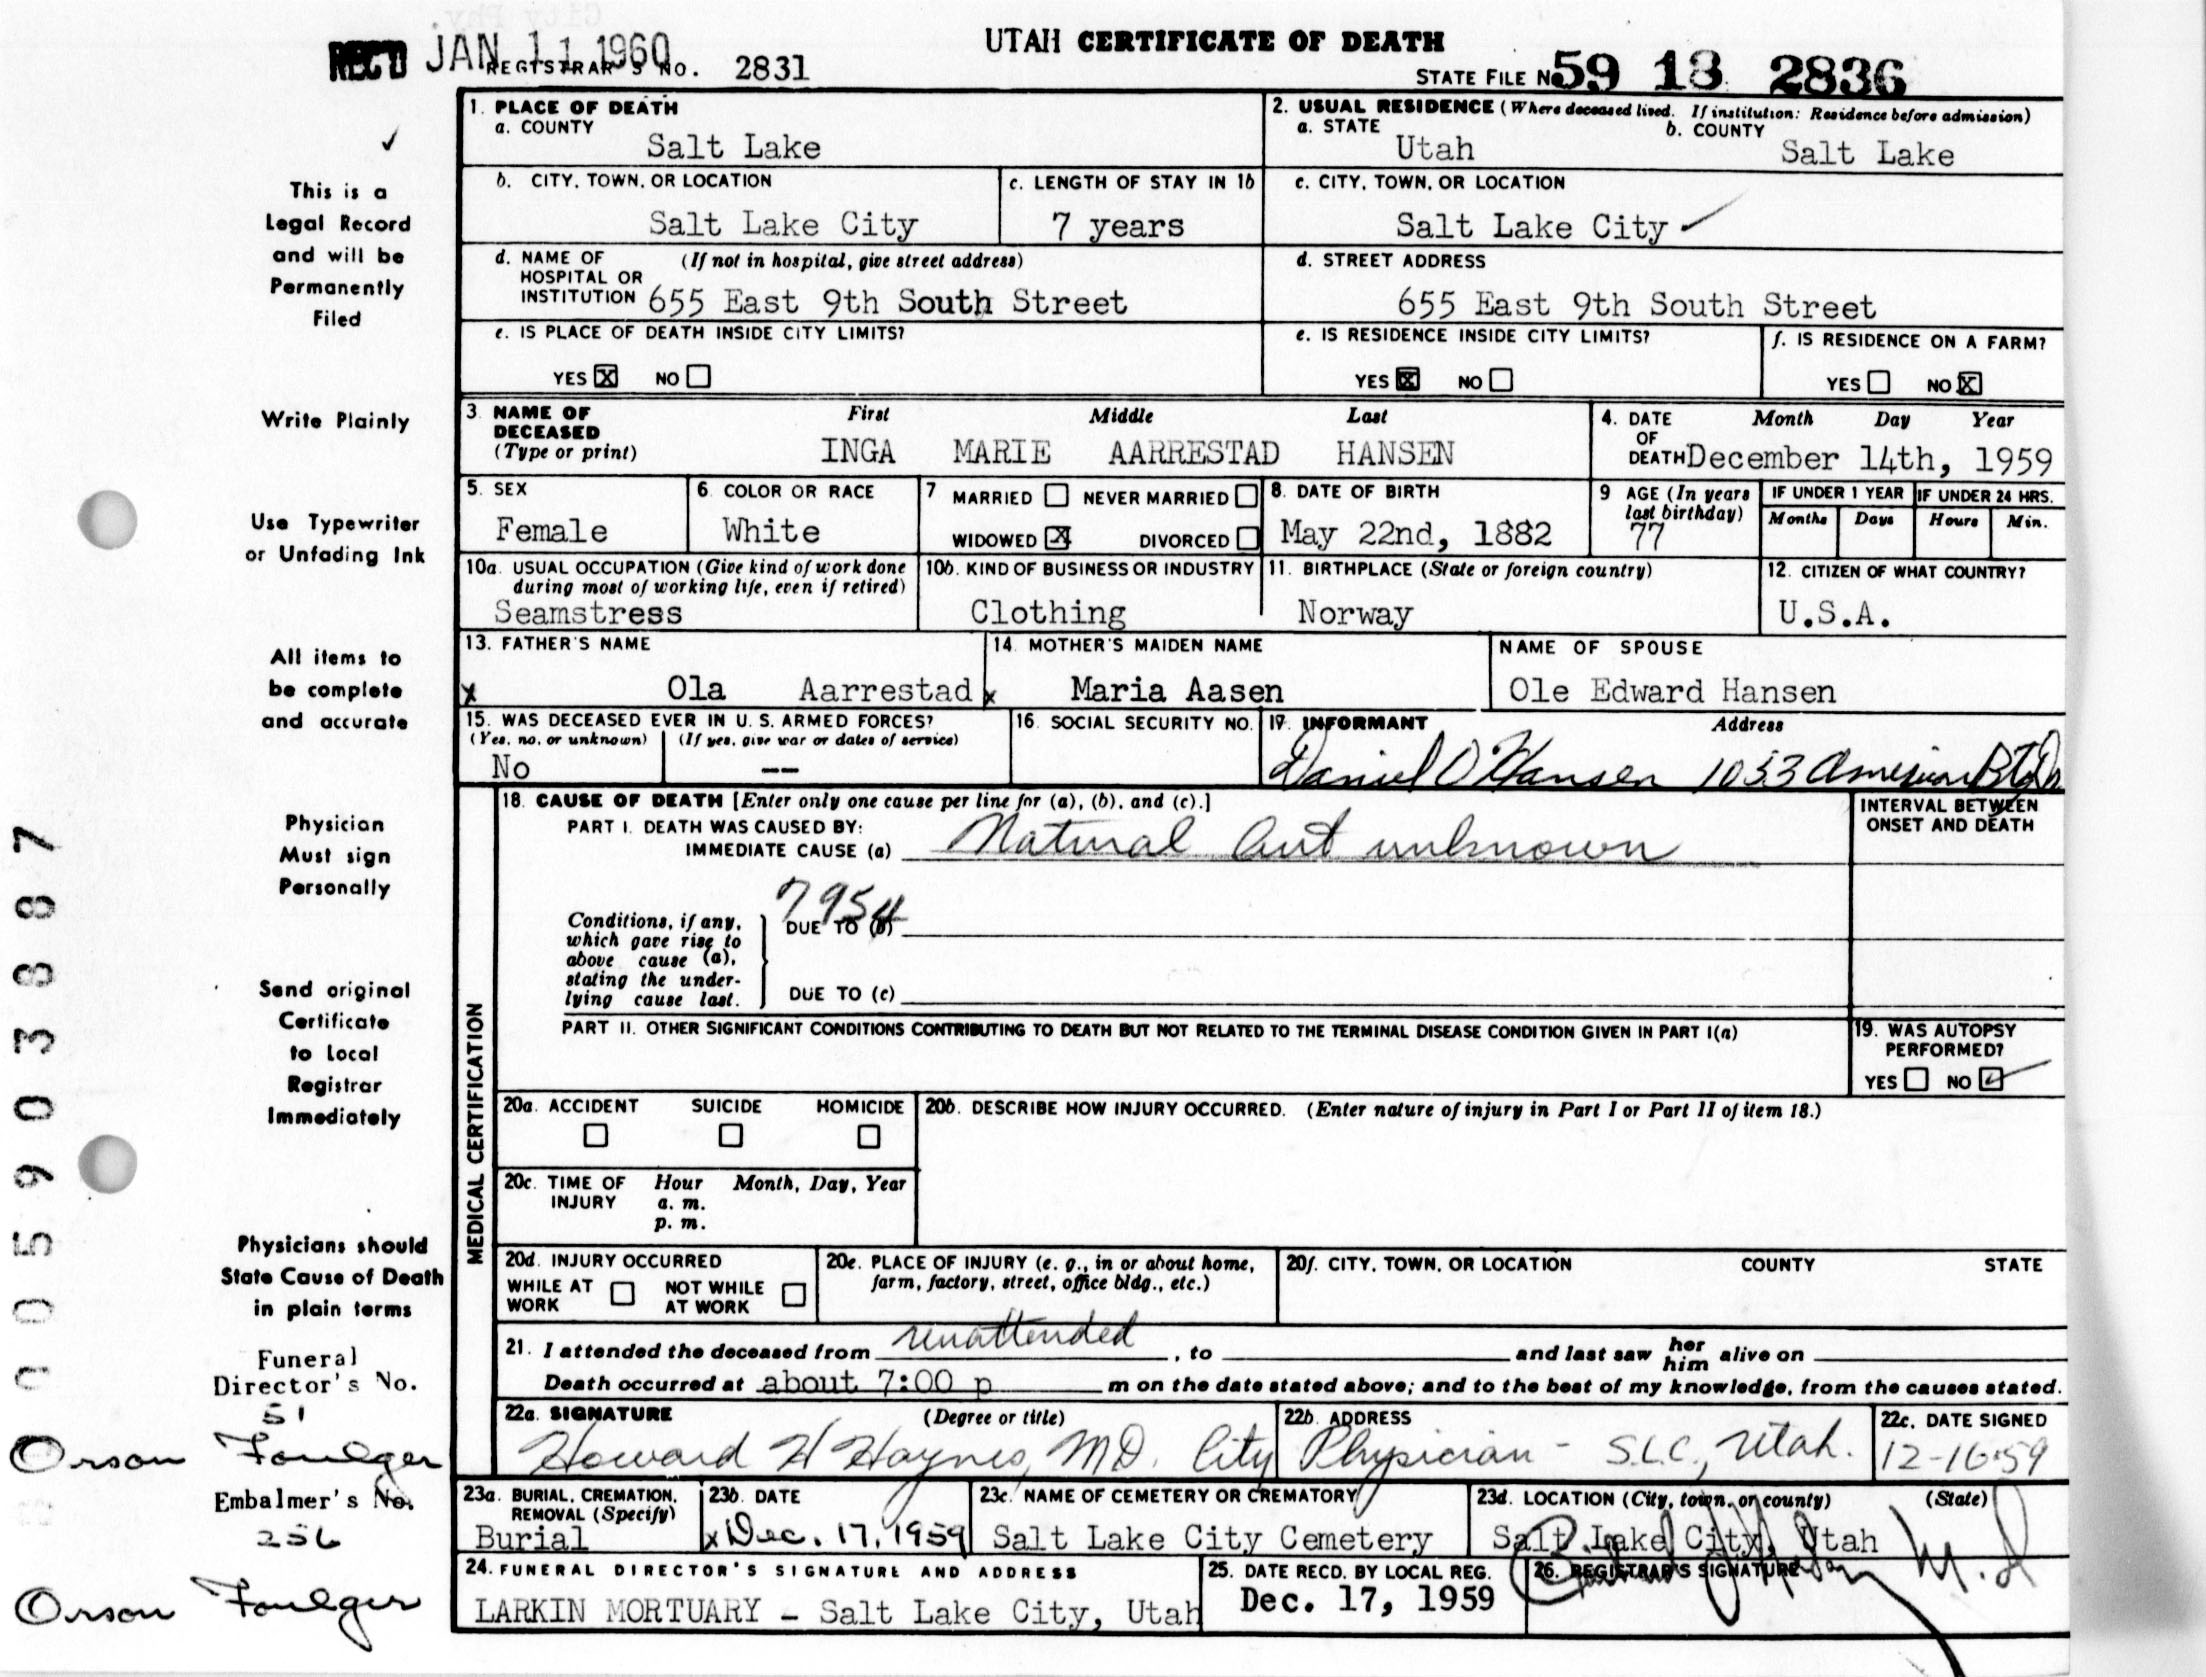 REC'D JAN 11 1960
REGISTRAR'S NO. 2831
UTAH CERTIFICATE OF DEATH
STATE FILE NO. 59 18 2836
This is a
Legal Record
and will be
Permanently
Filed
Write Plainly
Use Typewriter
or Unfading Ink
All items to
be complete
and accurate
Physician
Must sign
Personally
Send original
Certificate
to Local
Registrar
Immediately
Physicians should
State Cause of Death
in plain terms
Funeral
Director's No.
51
Orson Foulger
Embalmer's No.
256
Orson Foulger
1. PLACE OF DEATH
a. COUNTY
Salt Lake
2. USUAL RESIDENCE (Where deceased lived. If institution: Residence before admission)
a. STATE b. COUNTY
Utah Salt Lake
b. CITY, TOWN, OR LOCATION
Salt Lake City
c. LENGTH OF STAY IN 1b
7 years
c. CITY, TOWN, OR LOCATION
Salt Lake City
d. NAME OF (If not in hospital, give street address)
HOSPITAL OR
INSTITUTION 655 East 9th South Street
d. STREET ADDRESS
655 East 9th South Street
e. IS PLACE OF DEATH INSIDE CITY LIMITS?
YES X NO
e. IS RESIDENCE INSIDE CITY LIMITS?
YES X NO
f. IS RESIDENCE ON A FARM?
YES NO X
3. NAME OF DECEASED (Type or print)
First Middle Last
INGA MARIE AARRESTAD HANSEN
4. DATE OF DEATH Month Day Year
December 14th, 1959
5. SEX
Female
6. COLOR OR RACE
White
7 MARRIED NEVER MARRIED
WIDOWED X DIVORCED
8. DATE OF BIRTH
May 22nd, 1882
9 AGE (In years
last birthday)
77
IF UNDER 1 YEAR
Months Days
IF UNDER 24 HRS.
Hours Min.
10a. USUAL OCCUPATION (Give kind of work done
during most of working life, even if retired)
Seamstress
10b. KIND OF BUSINESS OR INDUSTRY
Clothing
11. BIRTHPLACE (State or foreign country)
Norway
12. CITIZEN OF WHAT COUNTRY?
U.S.A.
13. FATHER'S NAME
x Ola Aarrestad
14. MOTHER'S MAIDEN NAME
x Maria Aasen
NAME OF SPOUSE
Ole Edward Hansen
15. WAS DECEASED EVER IN U. S. ARMED FORCES?
(Yes, no, or unknown) (If yes, give war or dates of service)
No --
16. SOCIAL SECURITY NO.
17. INFORMANT Address
Daniel O Hansen 1053 American
MEDICAL CERTIFICATION
18. CAUSE OF DEATH [Enter only one cause per line for (a), (b), and (c).]
PART I. DEATH WAS CAUSED BY:
IMMEDIATE CAUSE (a) Natural but unknown
INTERVAL BETWEEN
ONSET AND DEATH
7954
Conditions, if any,
which gave rise to
above cause (a),
stating the under-
lying cause last.
DUE TO (b)
DUE TO (c)
PART II. OTHER SIGNIFICANT CONDITIONS CONTRIBUTING TO DEATH BUT NOT RELATED TO THE TERMINAL DISEASE CONDITION GIVEN IN PART I(a)
19. WAS AUTOPSY
PERFORMED?
YES NO
20a. ACCIDENT SUICIDE HOMICIDE
20b. DESCRIBE HOW INJURY OCCURRED. (Enter nature of injury in Part I or Part II of item 18.)
20c. TIME OF INJURY Hour Month, Day, Year
a. m.
p. m.
20d. INJURY OCCURRED
WHILE AT WORK NOT WHILE AT WORK
20e. PLACE OF INJURY (e. g., in or about home,
farm, factory, street, office bldg., etc.)
20f. CITY, TOWN, OR LOCATION COUNTY STATE
21. I attended the deceased from unattended, to and last saw her him alive on
Death occurred at about 7:00 p m on the date stated above; and to the best of my knowledge, from the causes stated.
22a. SIGNATURE (Degree or title)
Howard H Haynes, MD. City Physician - S.L.C., Utah.
22b. ADDRESS
22c. DATE SIGNED
12-16-59
23a. BURIAL, CREMATION,
REMOVAL (Specify)
Burial
23b. DATE
x Dec. 17, 1959
23c. NAME OF CEMETERY OR CREMATORY
Salt Lake City Cemetery
23d. LOCATION (City, town, or county) (State)
Salt Lake City, Utah
24. FUNERAL DIRECTOR'S SIGNATURE AND ADDRESS
LARKIN MORTUARY - Salt Lake City, Utah
25. DATE RECD. BY LOCAL REG.
Dec. 17, 1959
26. REGISTRAR'S SIGNATURE
M.D